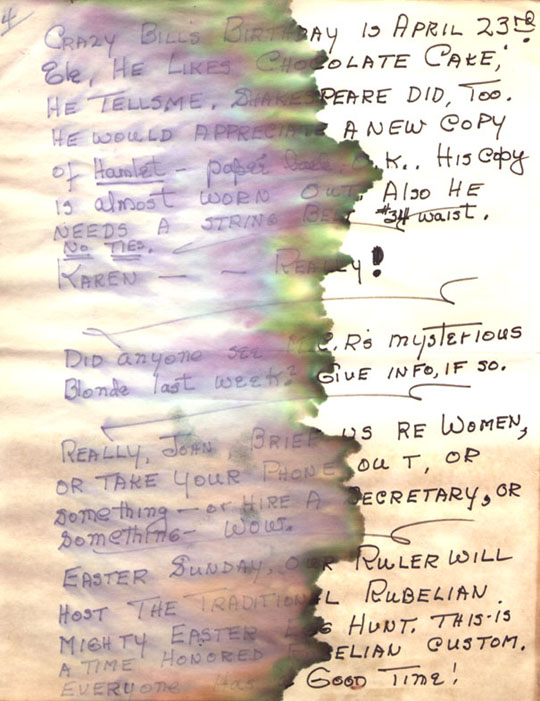 4
CRAZY BILL'S BIRTHDAY IS APRIL 23RD
Ek, HE LIKES CHOCOLATE CAKE,
HE TELLS ME. SHAKESPEARE DID, TOO.
HE WOULD APPRECIATE A NEW COPY
of Hamlet - paper back, O.K.. His copy
is almost WORN OUT. Also HE
NEEDS A STRING BELT #34 waist.
NO TIES.
KAREN — — REALLY!
DID anyone see R's mysterious
Blonde last week? GIVE INFO, IF SO.
REALLY, JOHN, BRIEF US RE WOMEN,
OR TAKE YOUR PHONE OUT, OR
something — or HIRE A SECRETARY, OR
something — WOW.
EASTER SUNDAY, OUR RULER WILL
HOST THE TRADITIONAL RUBELIAN
MIGHTY EASTER EGG HUNT. THIS IS
A TIME HONORED RUBELIAN CUSTOM.
EVERYONE HAS A GOOD TIME!